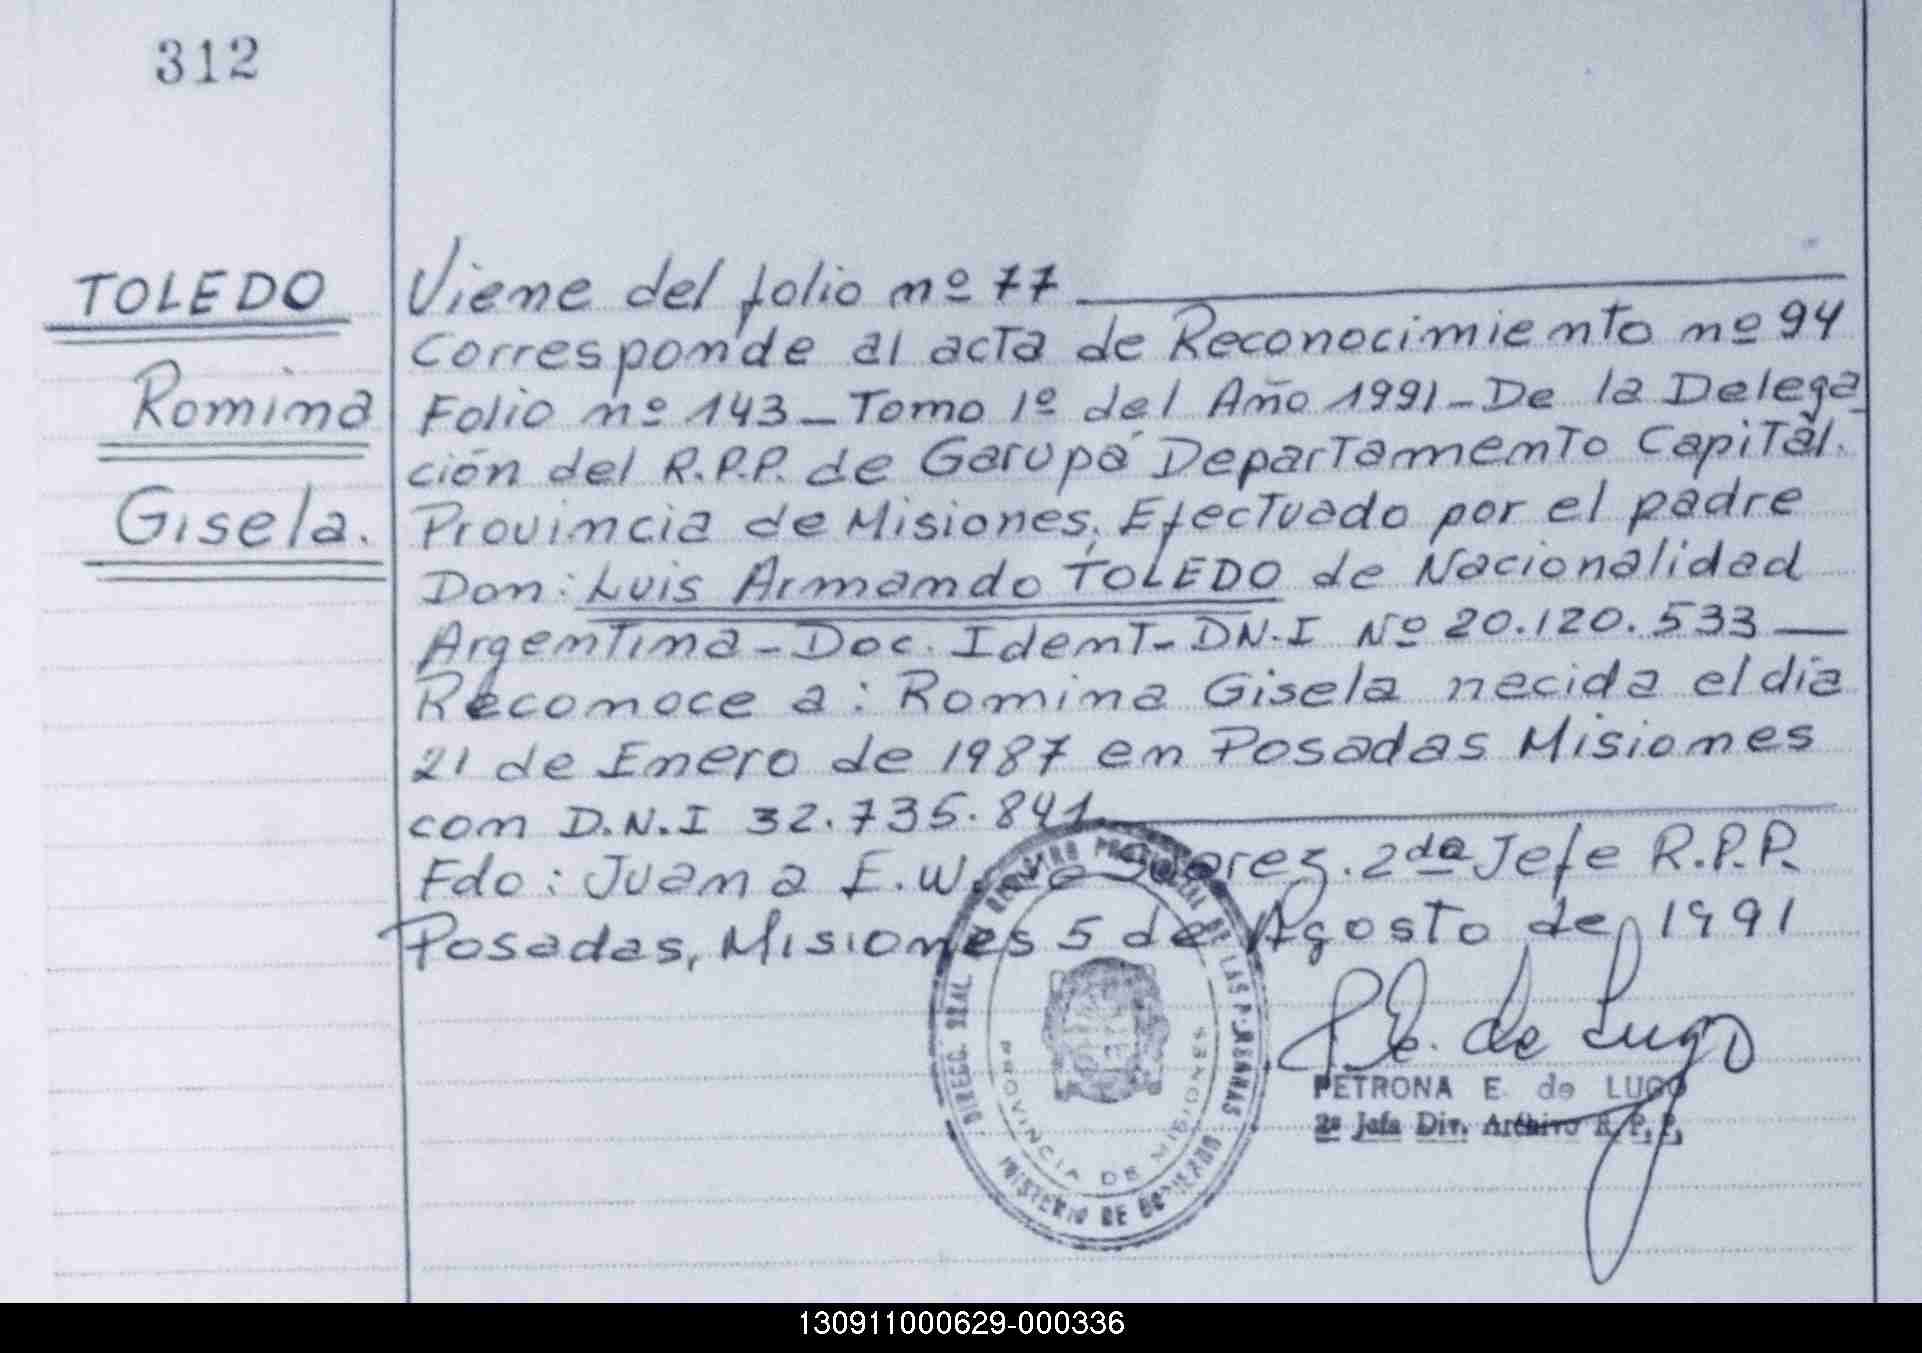 312
TOLEDO
Romina
Gisela.
Viene del folio nº 77
Corresponde al acta de Reconocimiento nº 94
Folio nº 143_Tomo 1º del Año 1991_De la Delega_
ción del R.P.P. de Garupá Departamento Capital.
Provincia de Misiones. Efectuado por el padre
Don: Luis Armando TOLEDO de Nacionalidad
Argentina_Doc. Ident_DN.I Nº 20.120.533
Reconoce a: Romina Gisela nacida el día
21 de Enero de 1987 en Posadas Misiones
con D.N.I 32.735.841
Fdo: Juana E.W. 2da Jefe R.P.P.
Posadas, Misiones 5 de Agosto de 1991
DIRECC. GRAL. DE LAS PERSONAS
PROVINCIA DE MISIONES
MINISTERIO DE GOBIERNO
P.E. de Lugo
PETRONA E. de LUGO
2ª Jefa Div. Archivo R.P.P.
130911000629-000336